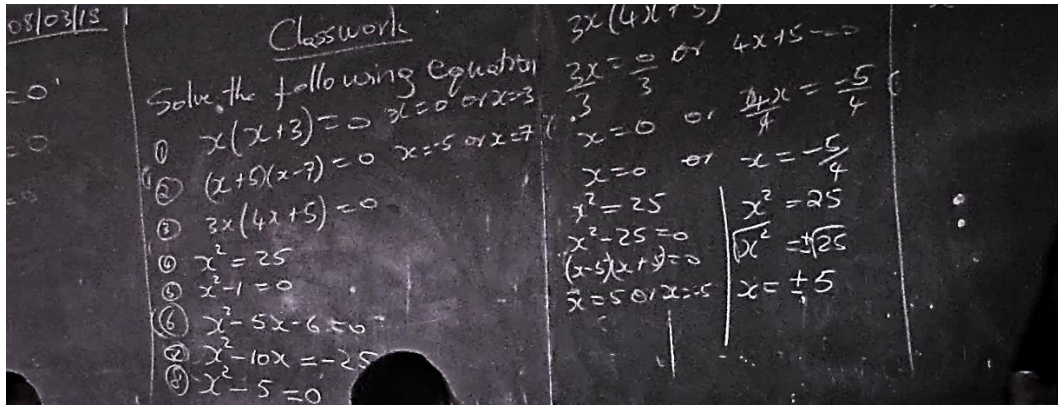 08/03/18
=0
=0
=0
Classwork
Solve the following equation
① x(x+3)=0 x=0 or x=-3
② (x+5)(x-7)=0 x=-5 or x=7
③ 3x(4x+5)=0
④ x²=25
⑤ x²-1=0
⑥ x²-5x-6=0
⑦ x²-10x=-25
⑧ x²-5=0
3x(4x+5)
3x/3=0/3 or 4x+5=0
x=0 or 4x/4=-5/4
x=0 or x=-5/4
x²=25
x²-25=0
(x-5)(x+5)=0
x=5 or x=-5
x²=25
√x²=±√25
x=±5